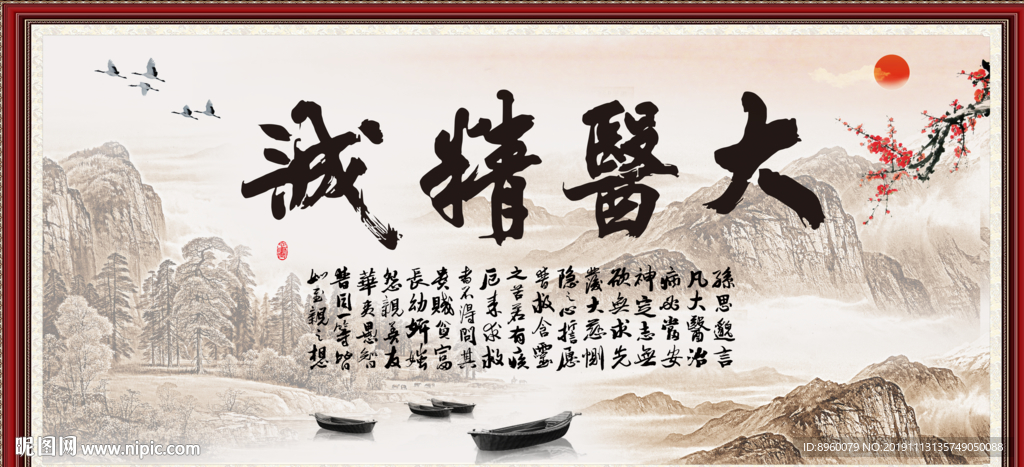 大醫精誠
孫思邈言
凡大醫治
病必當安
神定志無
欲無求先
發大慈惻
隱之心誓願
普救含靈
之苦若有疾
厄来求救
者不得問其
貴賤貧富
長幼妍媸
怨親善友
華夷愚智
普同一等皆
如至親之想
昵图网 www.nipic.com
ID:8960079 NO:20191113135749050088